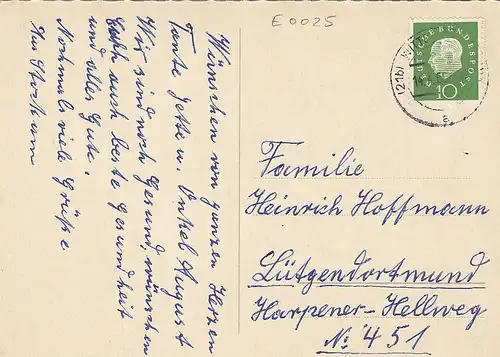 E0025
DEUTSCHE BUNDESPOST
10
(21b)
a
Wünschen von ganzen Herzen
Tante Jette u. Onkel August
Wir sind noch Gesund, wünschen
Euch auch beste gesundheit
und alles Gute.
Nochmal viele Grüße
Aus
Familie
Heinrich Hoffmann
Lütgendortmund
Harpener-Hellweg
No 451